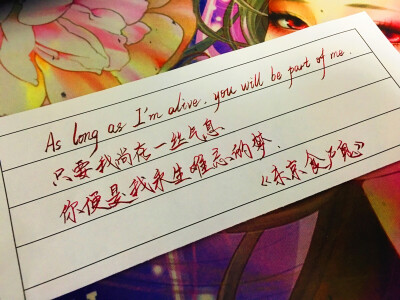 As long as I'm alive, you will be part of me.
只要我尚存一丝气息
你便是我永生难忘的梦.
《东京食尸鬼》